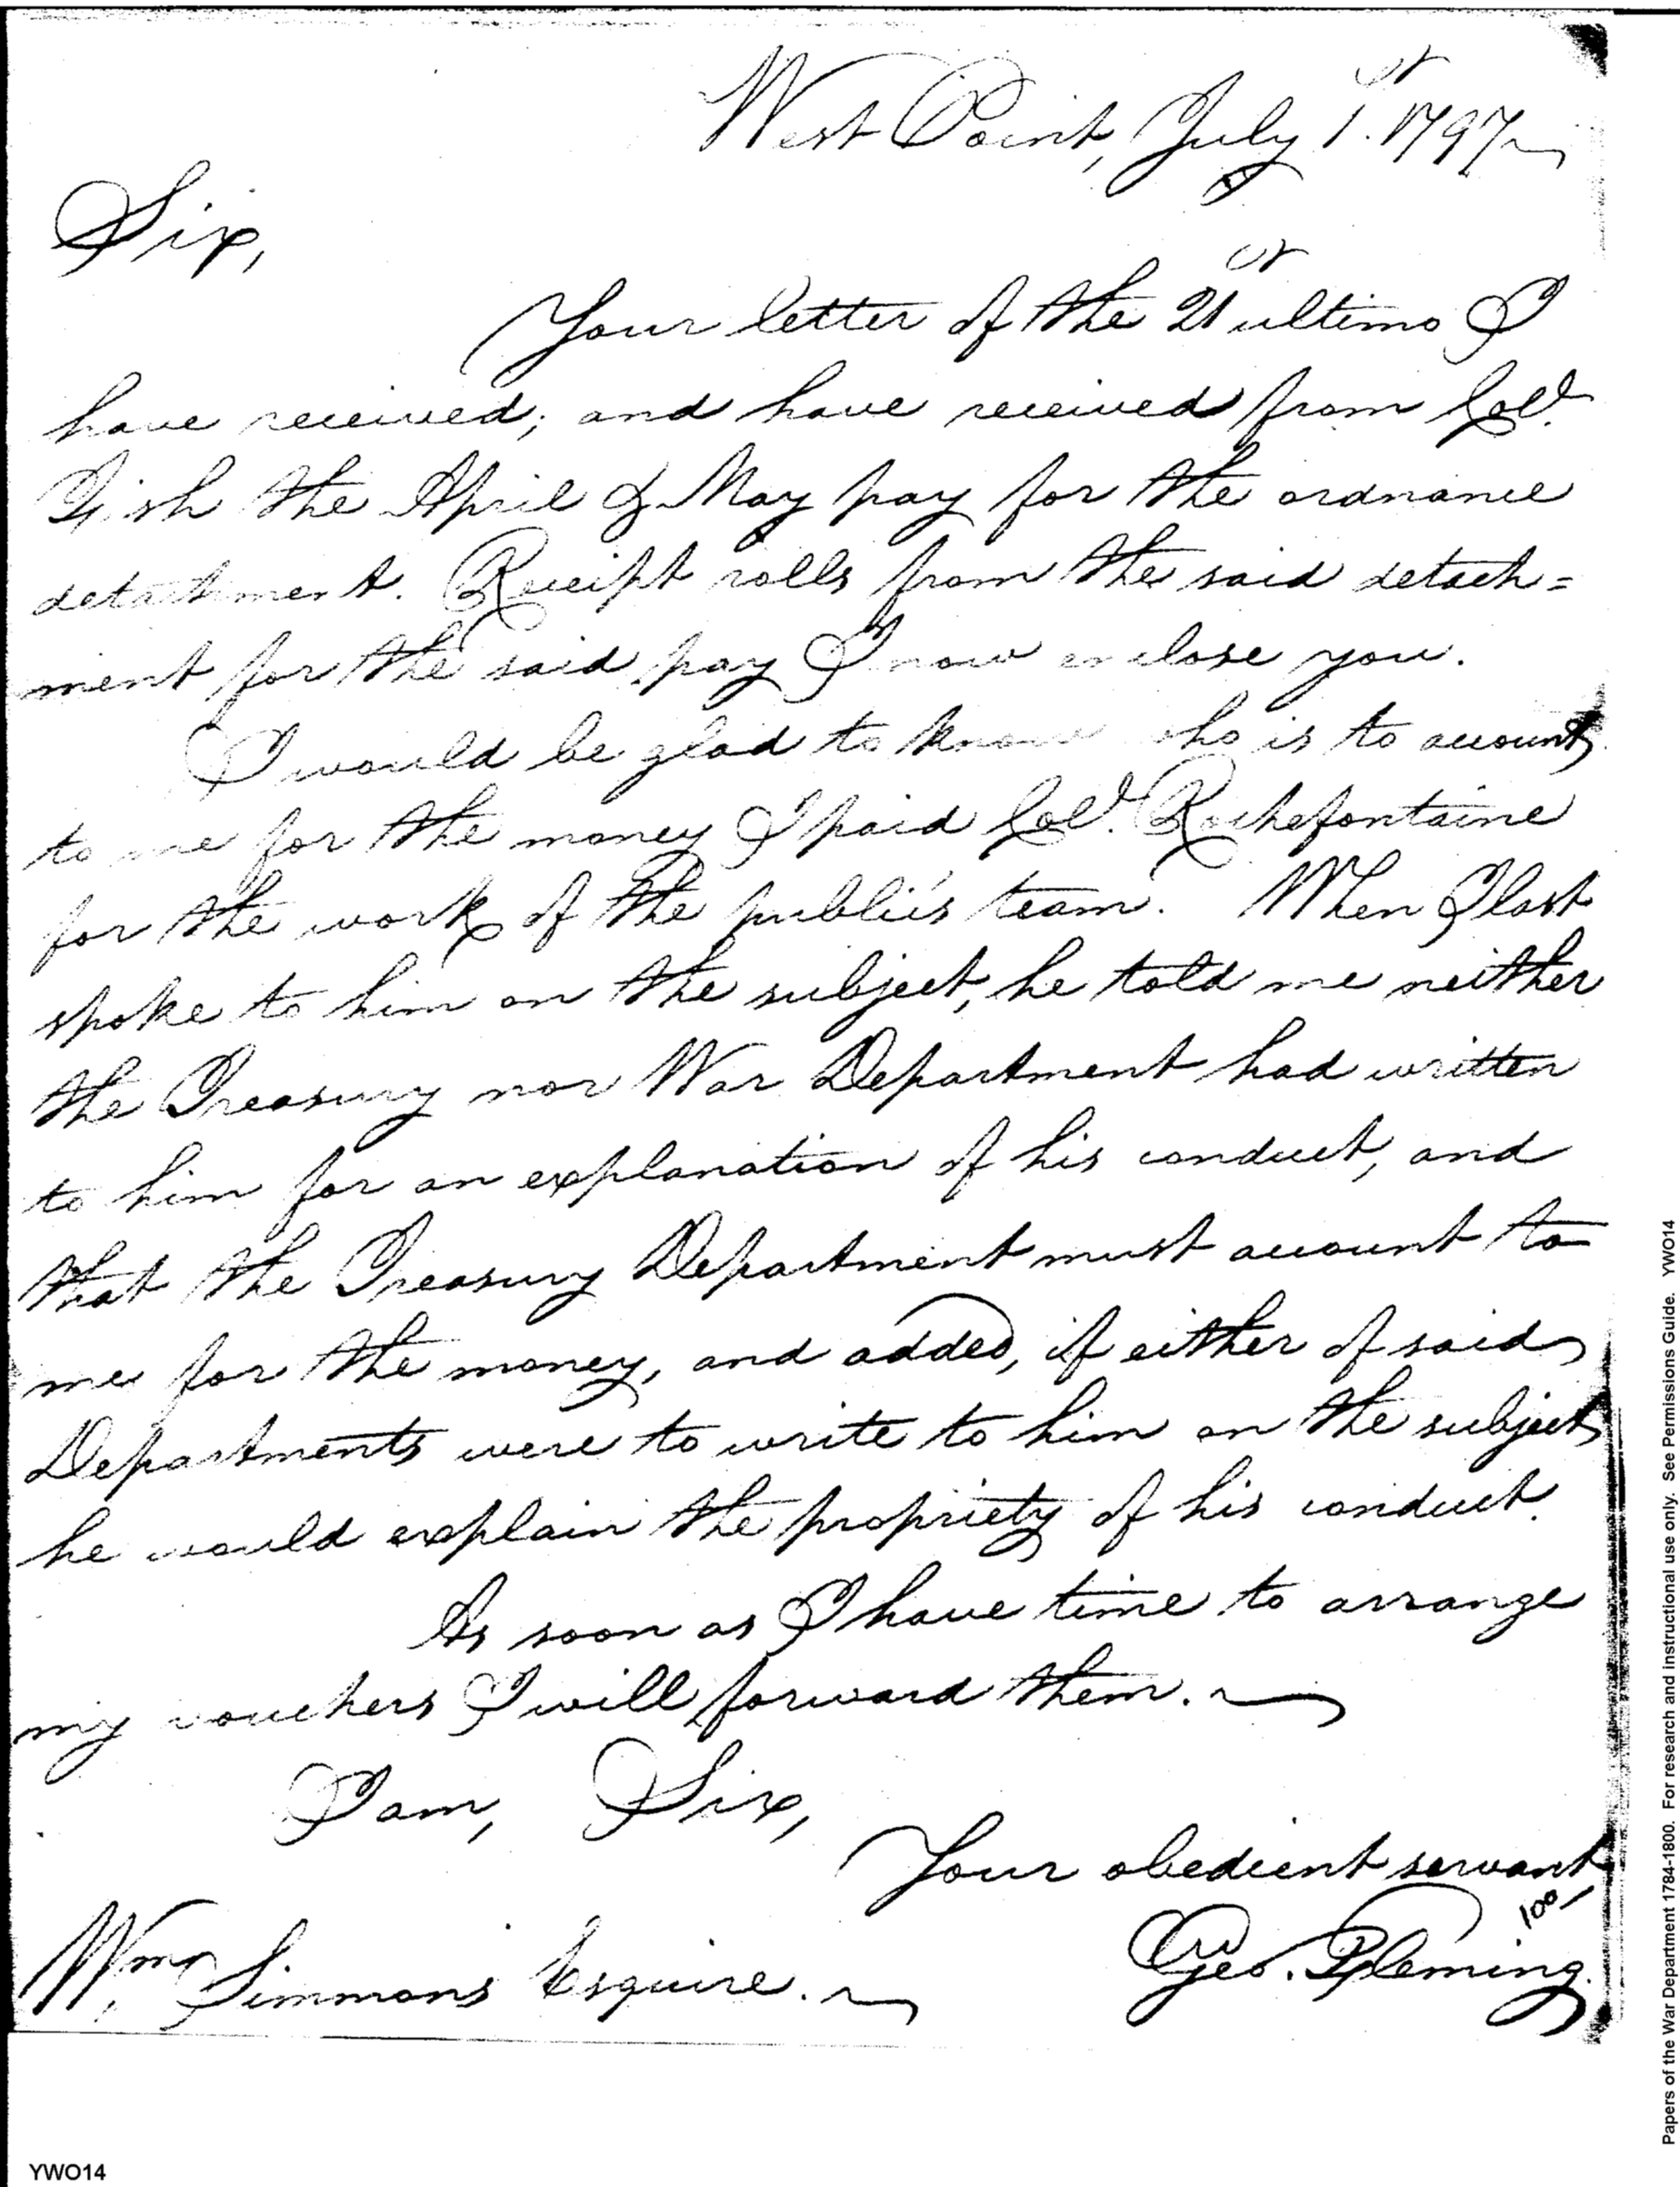 West Point, July 1st. 1797
Sir,
Your letter of the 21st ultimo I
have received; and have received from Col.
Fish the April & May pay for the ordnance
detachment. Receipt rolls from the said detach=
ment for the said pay I now enclose you.
I would be glad to know who is to account
to me for the money I paid Col. Rochefontaine
for the work of the public's team. When I last
spoke to him on the subject, he told me neither
the Treasury nor War Department had written
to him for an explanation of his conduct, and
that the Treasury Department must account to
me for the money, and added, if either of said
Departments were to write to him on the subject
he would explain the propriety of his conduct.
As soon as I have time to arrange
my vouchers I will forward them.
I am, Sir,
Your obedient servant
Geo. Fleming.
100
Wm. Simmons Esquire.
YWO14
Papers of the War Department 1784-1800. For research and instructional use only. See Permissions Guide. YWO14